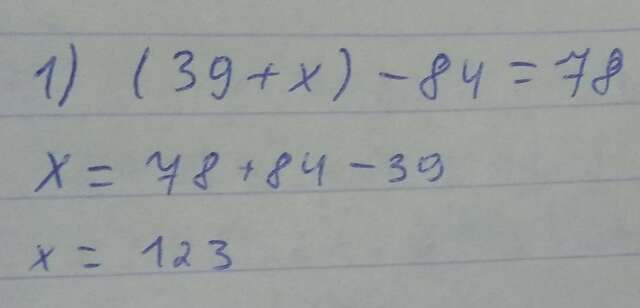 1) (39+x)-84=78
x = 78+84-39
x = 123